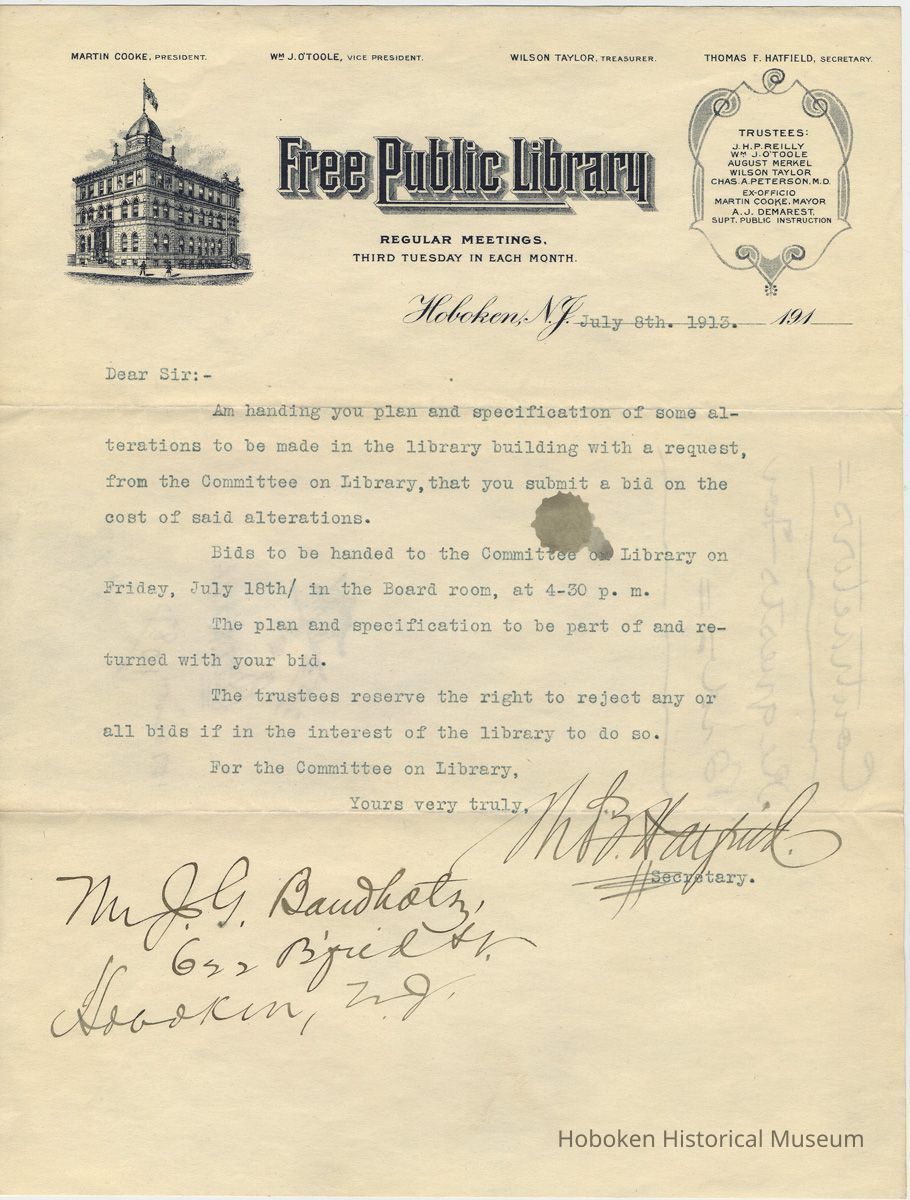 MARTIN COOKE, PRESIDENT. WM J. O'TOOLE, VICE PRESIDENT. WILSON TAYLOR, TREASURER. THOMAS F. HATFIELD, SECRETARY.
Free Public Library
REGULAR MEETINGS,
THIRD TUESDAY IN EACH MONTH.
TRUSTEES:
J. H. P. REILLY
WM J. O'TOOLE
AUGUST MERKEL
WILSON TAYLOR
CHAS. A. PETERSON, M.D.
EX-OFFICIO
MARTIN COOKE, MAYOR
A. J. DEMAREST,
SUPT. PUBLIC INSTRUCTION
Hoboken, N.J. July 8th. 1913. 191
Dear Sir:-
Am handing you plan and specification of some al-
terations to be made in the library building with a request,
from the Committee on Library, that you submit a bid on the
cost of said alterations.
Bids to be handed to the Committee on Library on
Friday, July 18th/ in the Board room, at 4-30 p. m.
The plan and specification to be part of and re-
turned with your bid.
The trustees reserve the right to reject any or
all bids if in the interest of the library to do so.
For the Committee on Library,
Yours very truly,
Hatfield.
Secretary.
Mr J. G. Bandholtz,
622 B'field St.
Hoboken, N.J.
Hoboken Historical Museum